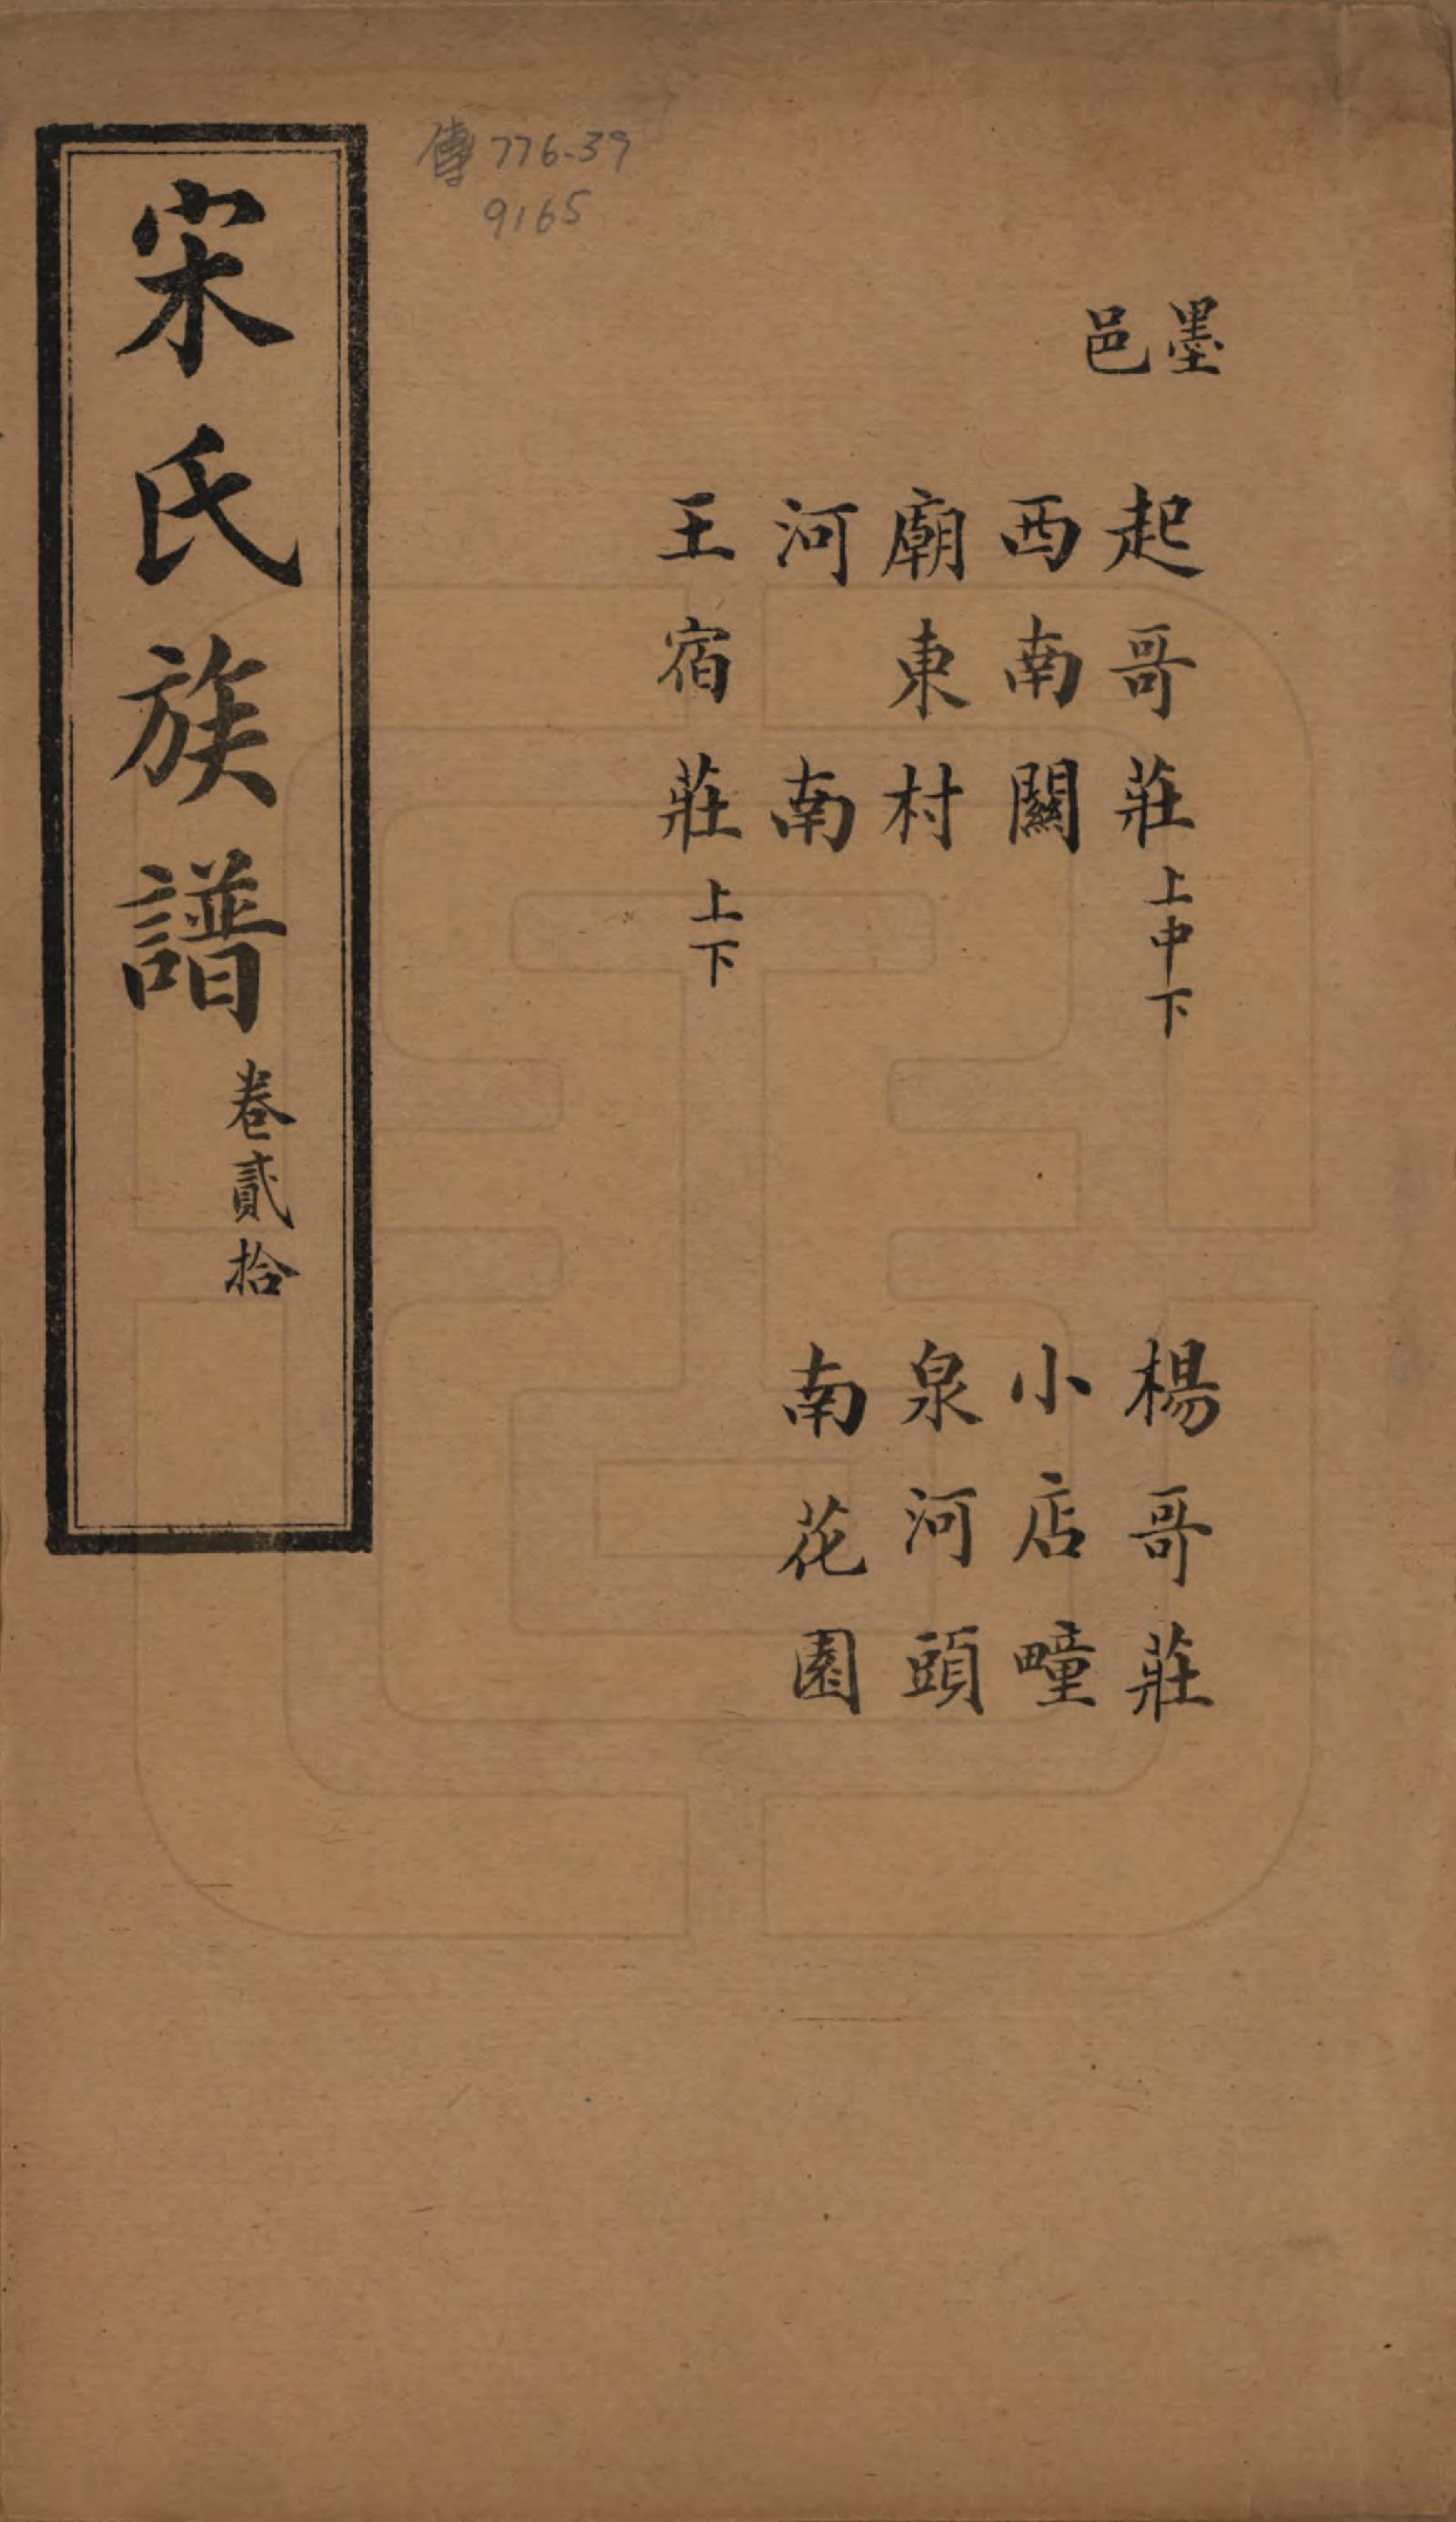 墨邑
起哥莊上中下
西南關
廟東村
河南
王宿莊上下
楊哥莊
小店疃
泉河頭
南花園
傳776-39
9165
宋氏族譜卷貳拾